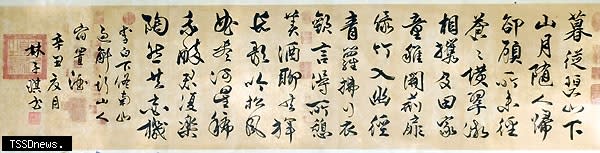 暮從碧山下
山月隨人歸
卻顧所來徑
蒼蒼橫翠微
相攜及田家
童稚開荊扉
綠竹入幽徑
青蘿拂行衣
歡言得所憩
美酒聊共揮
長歌吟松風
曲盡河星稀
我醉君復樂
陶然共忘機
李白下終南山
過斛斯山人
宿置酒
辛丑夏月
林子書
TSSDnews.